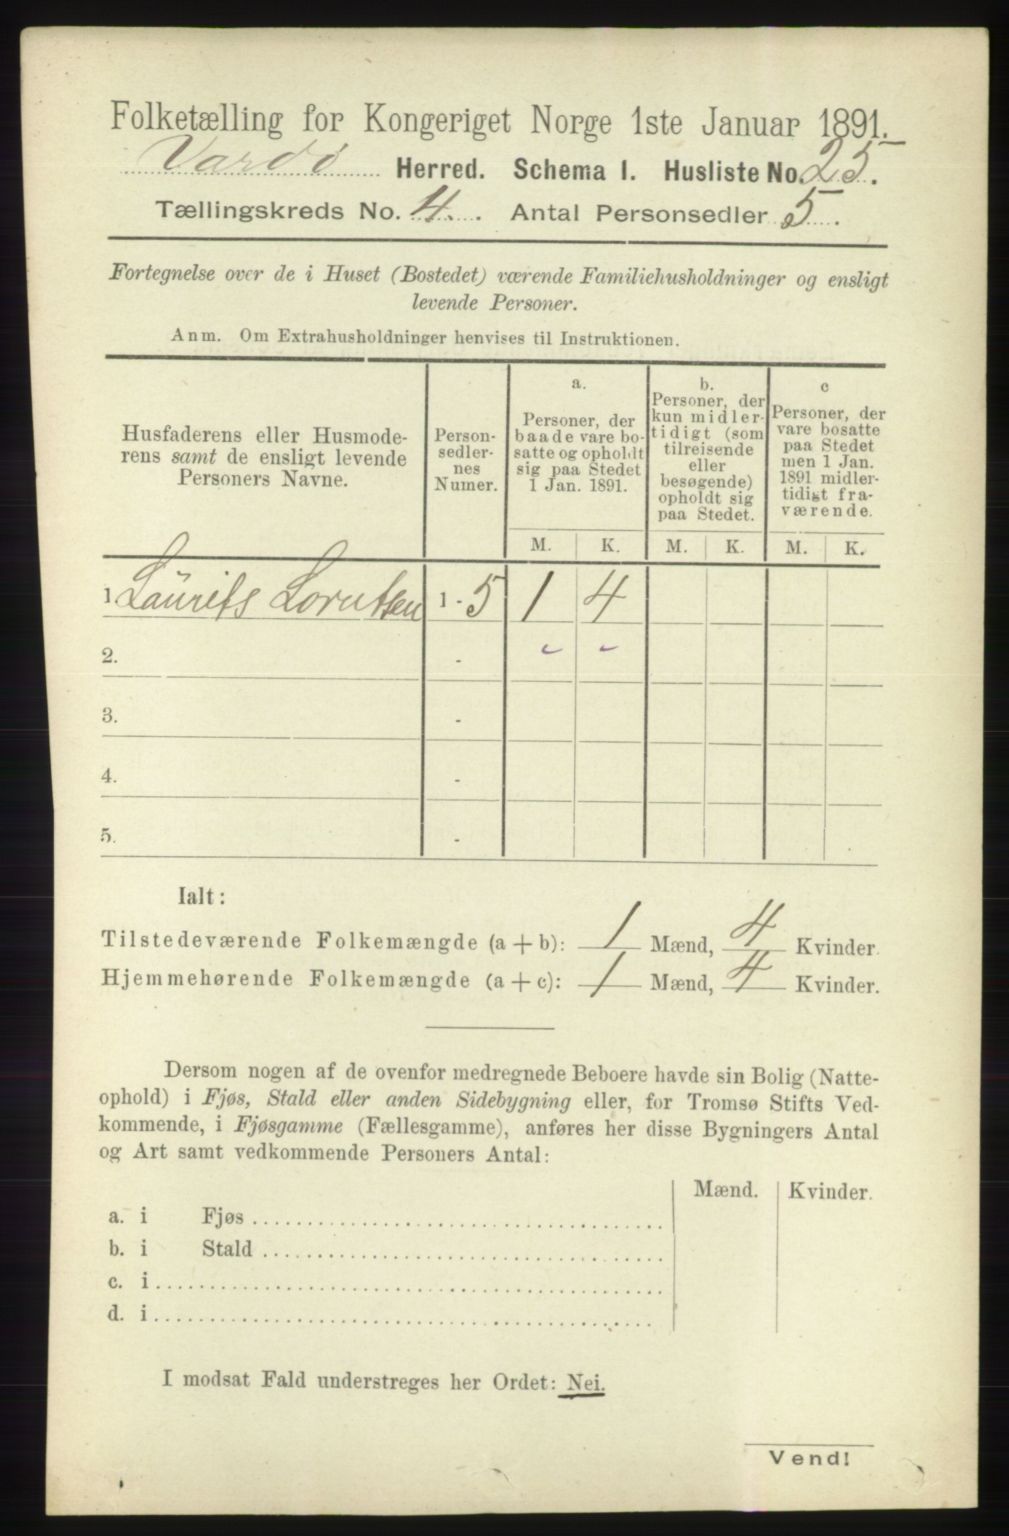 Folketælling for Kongeriget Norge 1ste Januar 1891.
Vardø Herred. Schema I. Husliste No. 25.
Tællingskreds No. 4. Antal Personsedler 5.
Fortegnelse over de i Huset (Bostedet) værende Familiehusholdninger og ensligt
levende Personer.
Anm. Om Extrahusholdninger henvises til Instruktionen.
Husfaderens eller Husmode-
rens samt de ensligt levende
Personers Navne.
Person-
sedler-
nes
Numer.
a.
Personer, der
baade vare bo-
satte og opholdt
sig paa Stedet
1 Jan. 1891.
b.
Personer, der
kun midler-
tidigt (som
tilreisende
eller
besøgende)
opholdt sig
paa Stedet.
c
Personer, der
vare bosatte
paa Stedet
men 1 Jan.
1891 midler-
tidigt fra-
værende.
M. K. M. K. M. K.
1 Laurits Lorntsen 1 - 5 1 4
2. -
3. -
4. -
5. -
Ialt:
Tilstedeværende Folkemængde (a + b): 1 Mænd, 4 Kvinder.
Hjemmehørende Folkemængde (a + c): 1 Mænd, 4 Kvinder.
Dersom nogen af de ovenfor medregnede Beboere havde sin Bolig (Natte-
ophold) i Fjøs, Stald eller anden Sidebygning eller, for Tromsø Stifts Ved-
kommende, i Fjøsgamme (Fællesgamme), anføres her disse Bygningers Antal
og Art samt vedkommende Personers Antal:
Mænd. Kvinder.
a. i Fjøs
b. i Stald
c. i
d. i
I modsat Fald understreges her Ordet: Nei.
Vend!